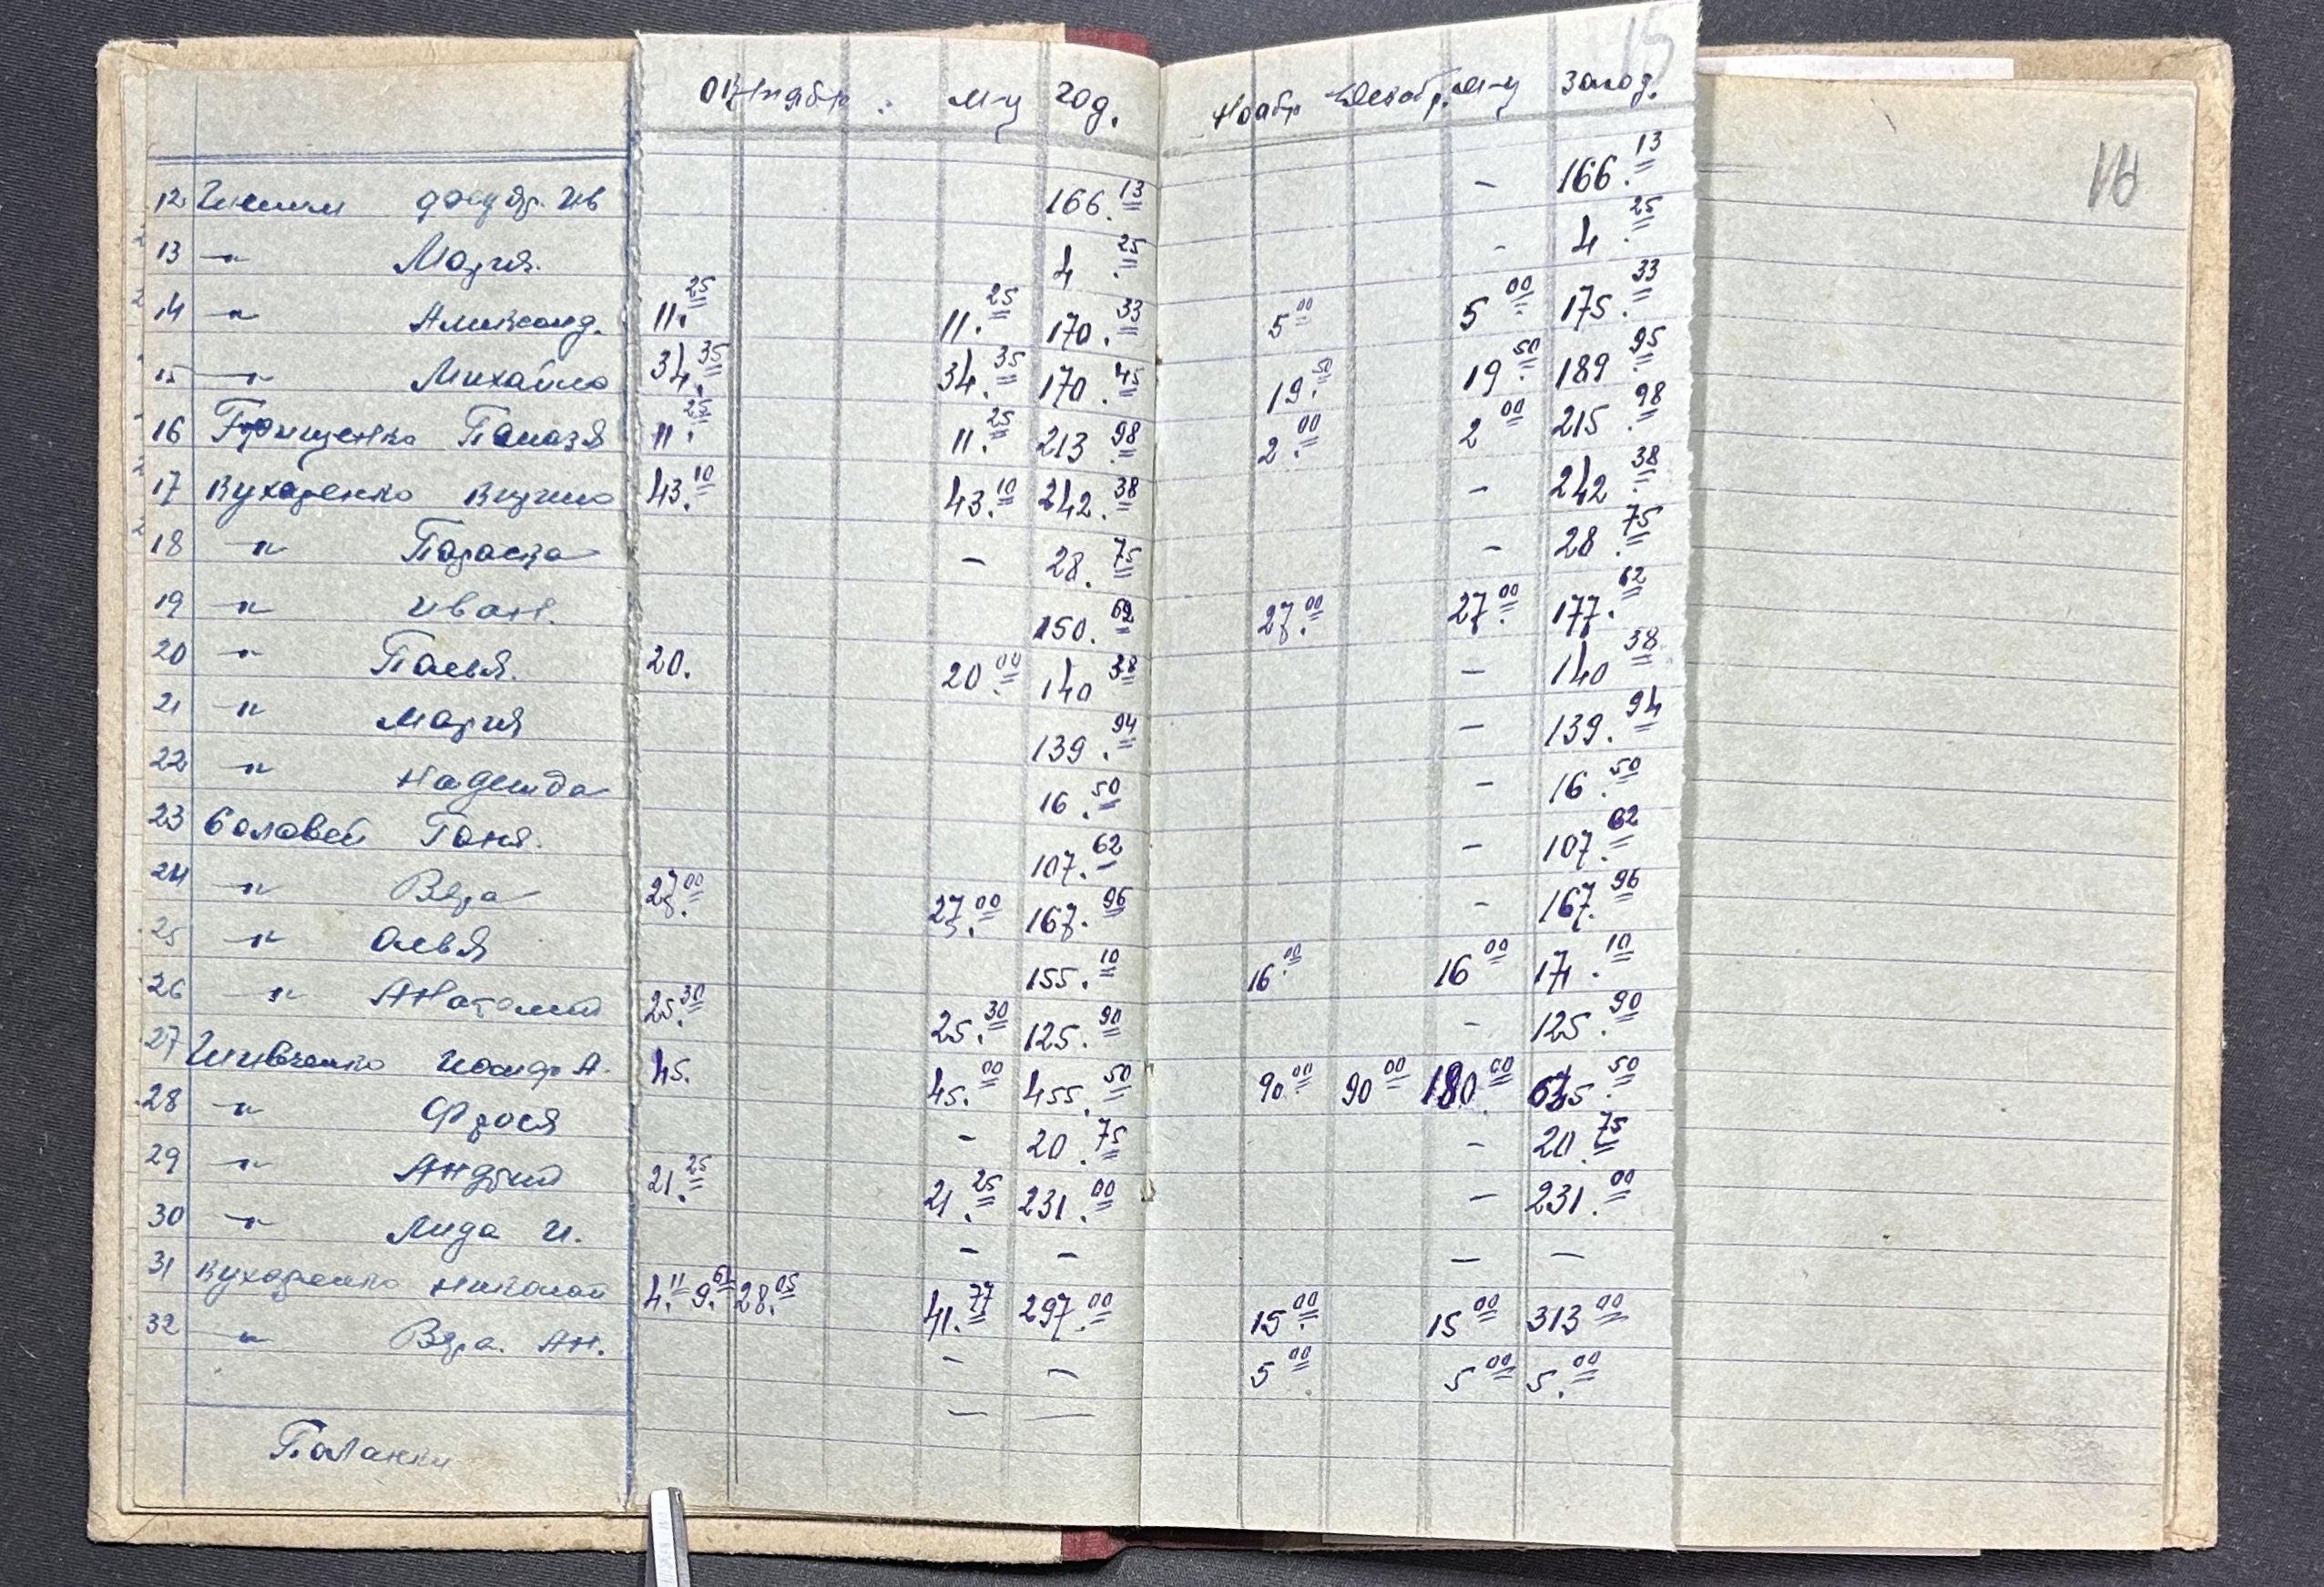 15
16
октябр. м-ц год. Ноабр Декабр. м-ц за год.
12 Федор. Ив 166.13 - 166.13
13 -"- Мария. 4.25 - 4.25
14 -"- Александ. 11.25 11.25 170.33 5 00 5 00 175.33
15 -"- Михайло 34.35 34.35 170.45 19.50 19.50 189.95
16 Грищенко Палазя 11.25 11.25 213.98 2.00 2 00 215.98
17 Кухаренко Кирило 43.10 43.10 242.38 - 242.38
18 -"- Параска - 28.75 - 28.75
19 -"- Иван. 150.62 27.00 27.00 177.62
20 -"- 20. 20.00 140 38 - 140 38
21 -"- Мария 139.94 - 139.94
22 -"- Надежда 16.50 - 16.50
23 Соловей Ганя. 107.62 - 107.62
24 -"- Вера 27.00 27.00 167.96 - 167.96
25 -"- Ольга 155.10 16.00 16 00 171.10
26 -"- Анатолий 25.30 25.30 125.90 - 125.90
27 А. 45. 45.00 455.50 90.00 90 00 180.00 635.50
28 -"- Фрося - 20.75 - 20.75
29 -"- Андрий 21.25 21.25 231.00 - 231.00
30 -"- Лида И. - - - -
31 Кухаренко Николай 4.11 9.61 28.05 41.77 297.00 15.00 15 00 313 00
32 -"- Вера. Ан. - - 5 00 5 00 5.00
- -
Паланки